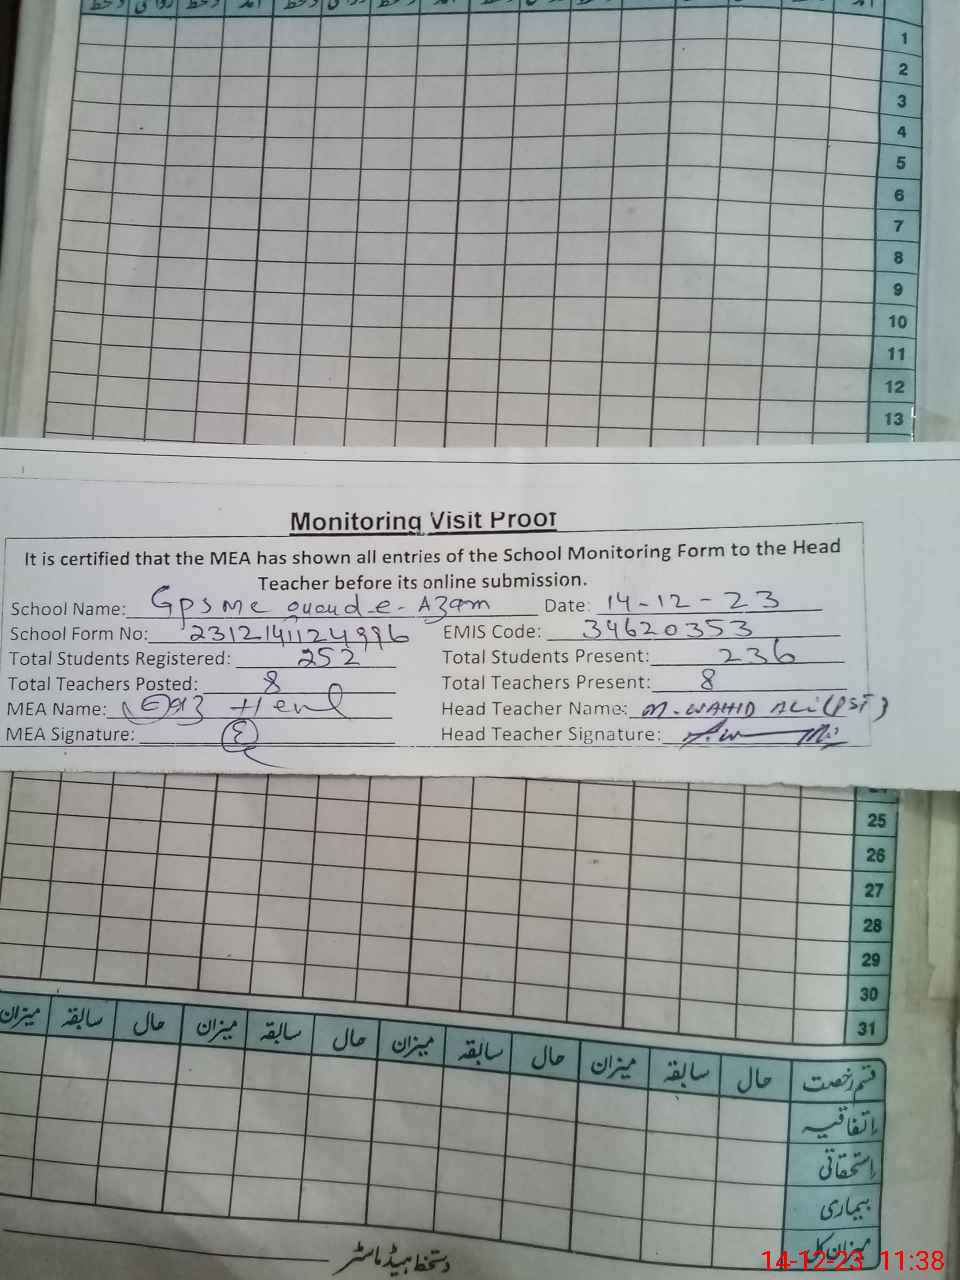 1
2
3
4
5
6
7
8
9
10
11
12
13
Monitoring Visit Proof
It is certified that the MEA has shown all entries of the School Monitoring Form to the Head
Teacher before its online submission.
School Name: GPS MC Quaud-e-Azam Date: 14-12-23
School Form No: 2312141124996 EMIS Code: 34620353
Total Students Registered: 252 Total Students Present: 236
Total Teachers Posted: 8 Total Teachers Present: 8
MEA Name: Head Teacher Name: M. WAHID ALi (PST)
MEA Signature: Head Teacher Signature:
25
26
27
28
29
30
31
قسم رخصت حال سابقہ میزان حال سابقہ میزان حال سابقہ میزان حال سابقہ میزان
اتفاقیہ
استحقاقی
بیماری
میزان کل
دستخط ہیڈ ماسٹر
14-12-23 11:38